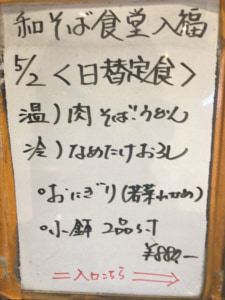 和そば食堂入福
5/2 <日替定食>
温)肉そば・うどん
冷)なめたけおろし
○おにぎり(若菜わかめ)
○小鉢 2品付
¥880-
入口こちら